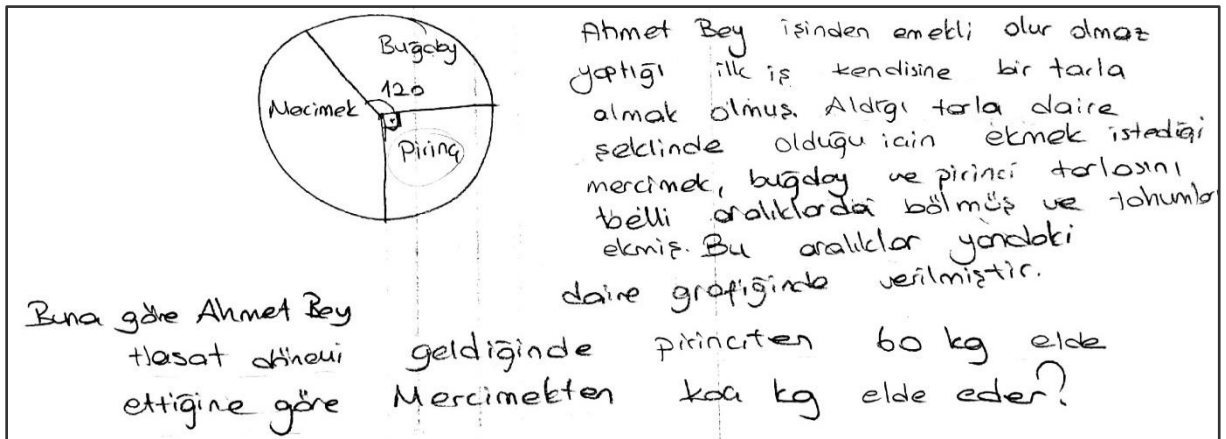 Buğday
120
Mecimek
Pirinç
Ahmet Bey işinden emekli olur olmaz
yaptığı ilk iş kendisine bir tarla
almak olmuş. Aldığı tarla daire
şeklinde olduğu için ekmek istediği
mercimek, buğday ve pirinci tarlasını
belli aralıklarda bölmüş ve tohumlar
ekmiş. Bu aralıklar yandaki
daire grafiğinde verilmiştir.
Buna göre Ahmet Bey
Hasat dönemi geldiğinde pirinçten 60 kg elde
ettiğine göre Mercimekten kaç kg elde eder?